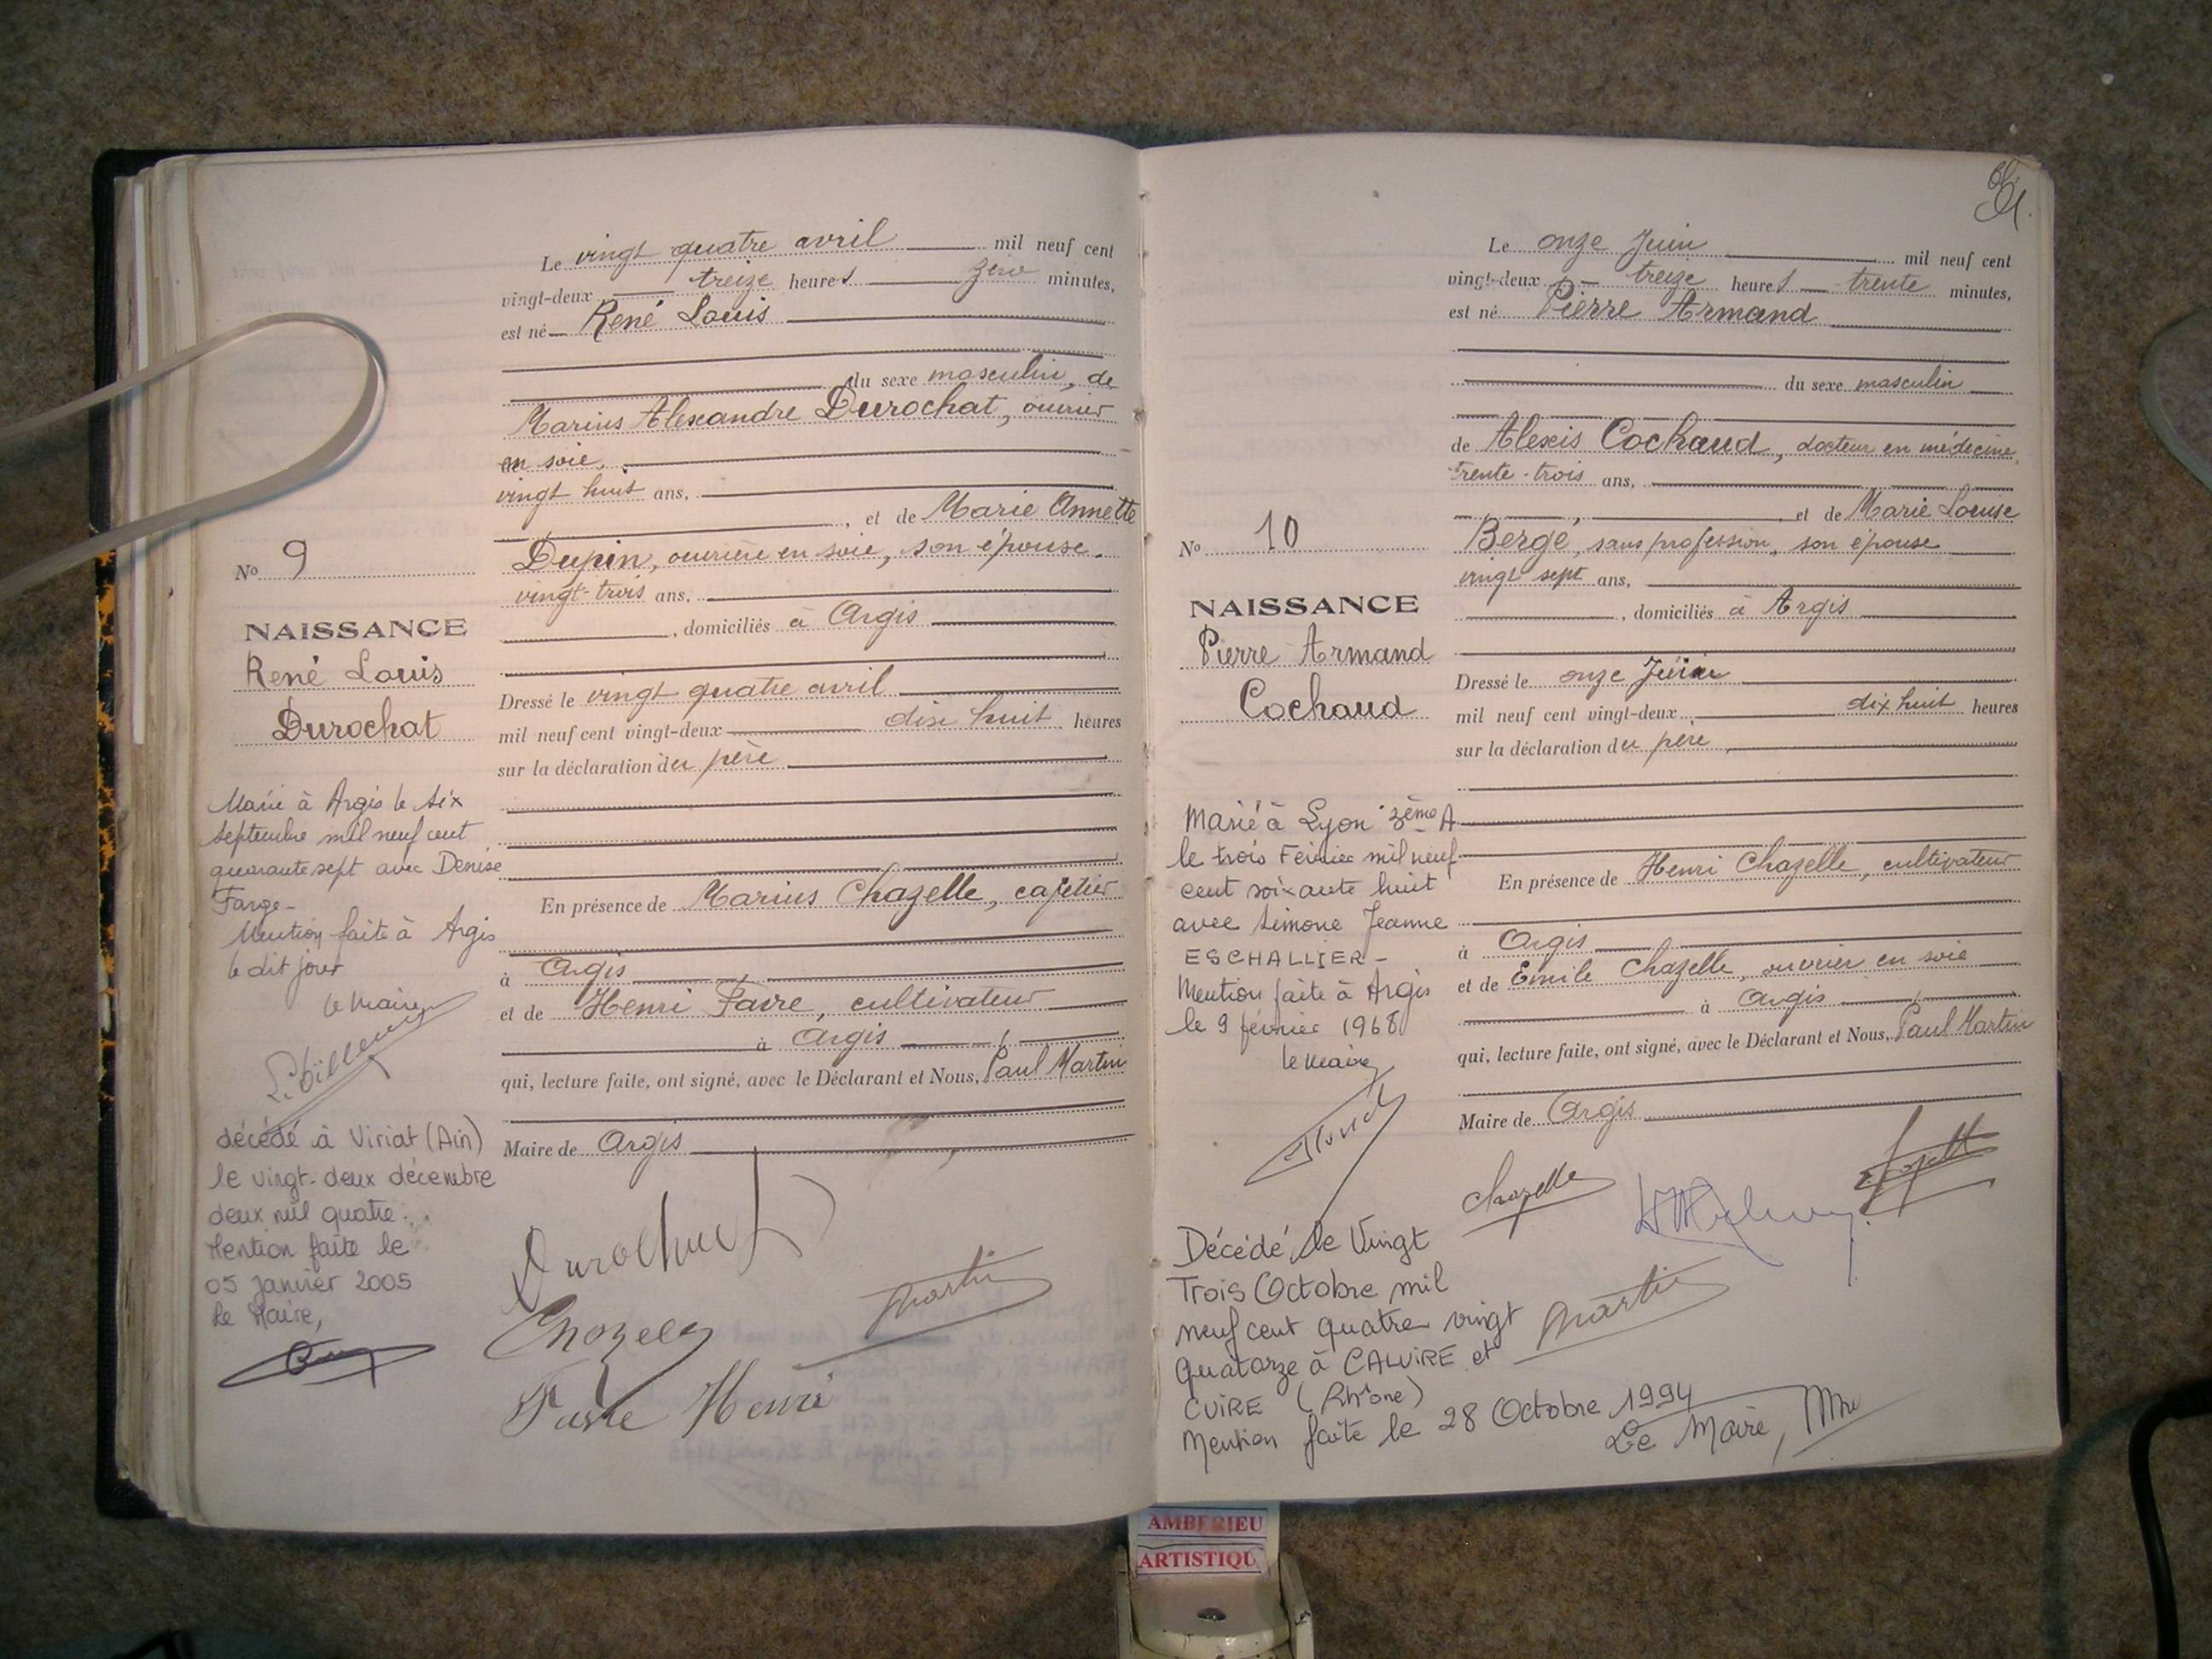 Le vingt quatre avril mil neuf cent
vingt-deux treize heures zéro minutes,
est né René Louis
du sexe masculin, de
Marius Alexandre Durochat, ouvrier
en soie,
vingt huit ans,
, et de Marie Annette
Dupin, ouvrière en soie, son épouse.
vingt-trois ans,
, domiciliés à Argis
Dressé le vingt quatre avril
mil neuf cent vingt-deux dix huit heures
sur la déclaration du père
En présence de Marius Chazelle, cafetier
à Argis
et de Henri Favre, cultivateur
à Argis
qui, lecture faite, ont signé, avec le Déclarant et Nous, Paul Martin
Maire de Argis
Durochat
Chazelle
Martin
Favre Henri
No 9
NAISSANCE
René Louis
Durochat
Marié à Argis le six
septembre mil neuf cent
quarante sept avec Denise
Farge-
Mention faite à Argis
le dit jour
le Maire
décédé à Viriat (Ain)
le vingt-deux décembre
deux mil quatre.
Mention faite le
05 janvier 2005
Le Maire,
Le onze Juin mil neuf cent
vingt-deux treize heures trente minutes,
est né Pierre Armand
du sexe masculin
de Alexis Cochaud, docteur en médecine,
trente-trois ans,
, et de Marie Louise
Berge, sans profession, son épouse
vingt sept ans,
, domiciliés à Argis
Dressé le onze Juin
mil neuf cent vingt-deux dix huit heures
sur la déclaration du père
En présence de Henri Chazelle, cultivateur
à Argis
et de Emile Chazelle, ouvrier en soie
à Argis
qui, lecture faite, ont signé, avec le Déclarant et Nous, Paul Martin
Maire de Argis
Chazelle
Martin
No 10
NAISSANCE
Pierre Armand
Cochaud
Marié à Lyon 3ème A
le trois Février mil neuf
cent soixante huit
avec Simone Jeanne
ESCHALLIER-
Mention faite à Argis
le 9 février 1968
le Maire
Décédé le Vingt
Trois Octobre mil
neuf cent quatre vingt
Quatorze à CALUIRE et
CUIRE (Rhône)
Mention faite le 28 Octobre 1994
Le Maire,
AMBERIEU
ARTISTIQU